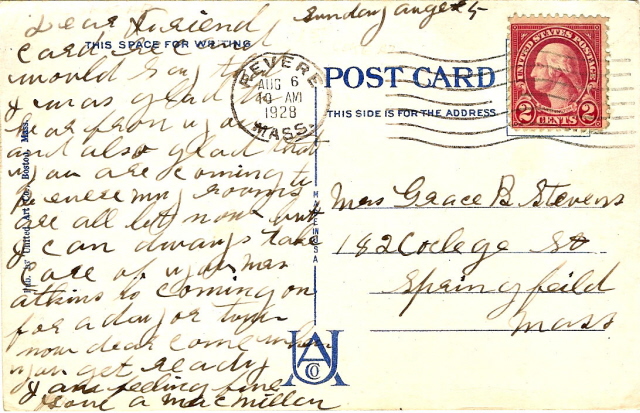 Sunday aug 5
Dear Friend
card received
THIS SPACE FOR WRITING
would say that
I was glad to
hear from you
and also glad that
you are coming to
Revere my rooms
are all let now but
I can always take
care of you Mrs
atkins is coming on
for a day or two
now dear come when
you get ready
I am feeling fine
Love a MacMillen
REVERE
AUG 6
10 AM
1928
MASS.
POST CARD
THIS SIDE IS FOR THE ADDRESS
UNITED STATES POSTAGE
2 CENTS 2
Mrs Grace B Stevens
182 Colege St
Springfeild
Mass
Pub. by United Art Co., Boston, Mass.
MADE IN USA
UA CO